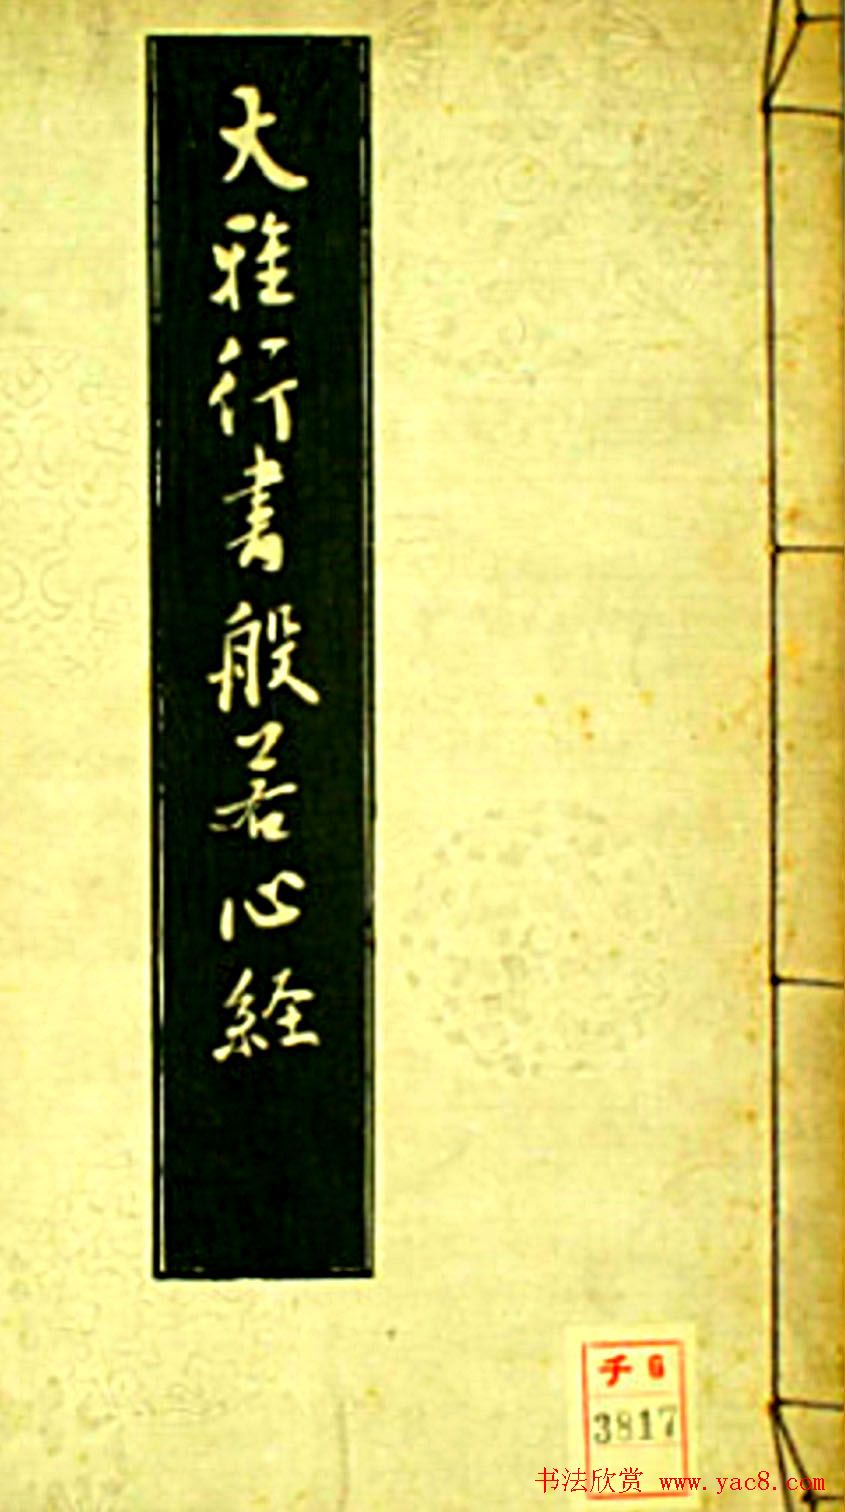 大雅行書般若心経
チ 6
3817
书法欣赏 www.yac8.com